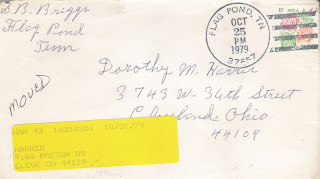 S.B. Briggs
Flag Pond
Tenn
FLAG POND, TN
OCT
25
PM
1979
37657
MOVED
Dorothy M. Harris
3743 W. 34th Street
Cleveland Ohio
44109
HAR 43 16010351 10/31/79
HARRIS
4186 BRETON DR
CLEVE OH 44109